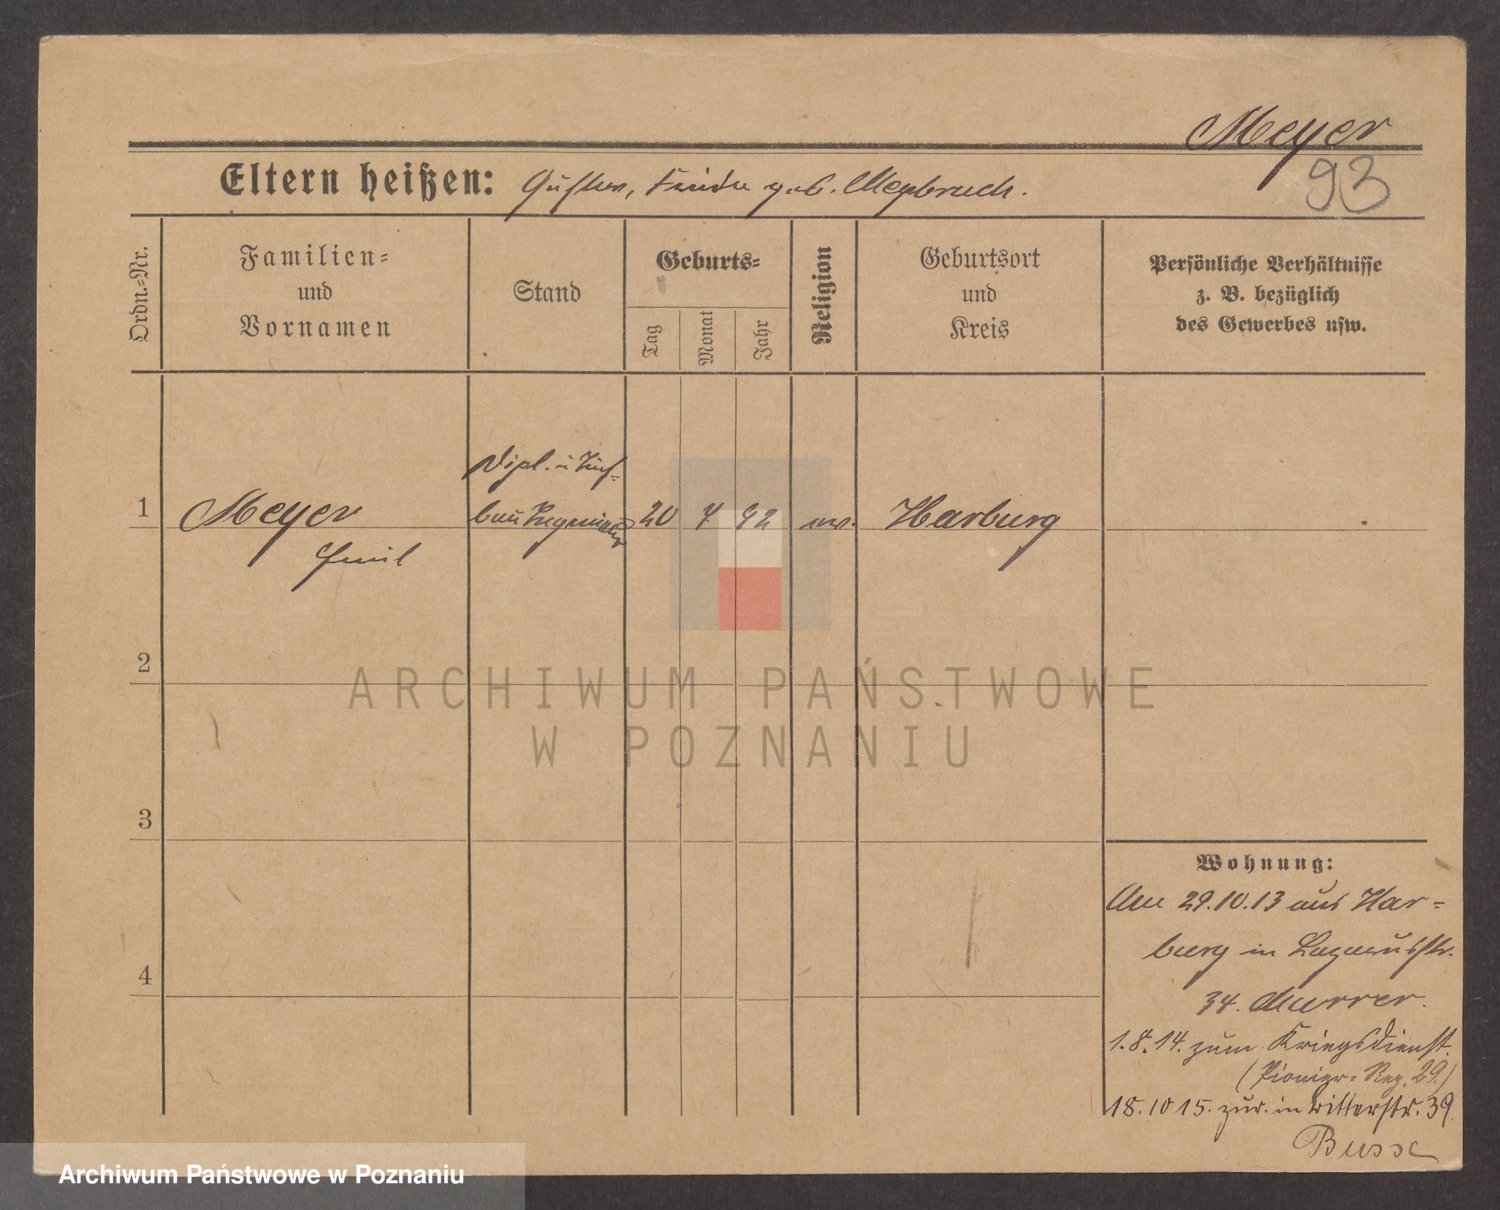 Meyer
93
Eltern heißen: Gustav, geb. Meybruch.
Ordn.-Nr.
Familien-
und
Vornamen
Stand
Geburts-
Tag
Monat
Jahr
Religion
Geburtsort
und
Kreis
Persönliche Verhältnisse
z. B. bezüglich
des Gewerbes usw.
Dipl. u Tief-
1 Meyer bau Ingenieur 20 4 92 ev. Harburg
Emil
2
3
4
Wohnung:
Am 29.10.13 aus Har-
burg in Lazarusstr.
34. Murrer.
1.8.14. zum Kriegsdienst.
(Pionier-Reg. 29.)
18.10 15. zur. in Ritterstr. 39.
Busse
ARCHIWUM PAŃSTWOWE
W POZNANIU
Archiwum Państwowe w Poznaniu